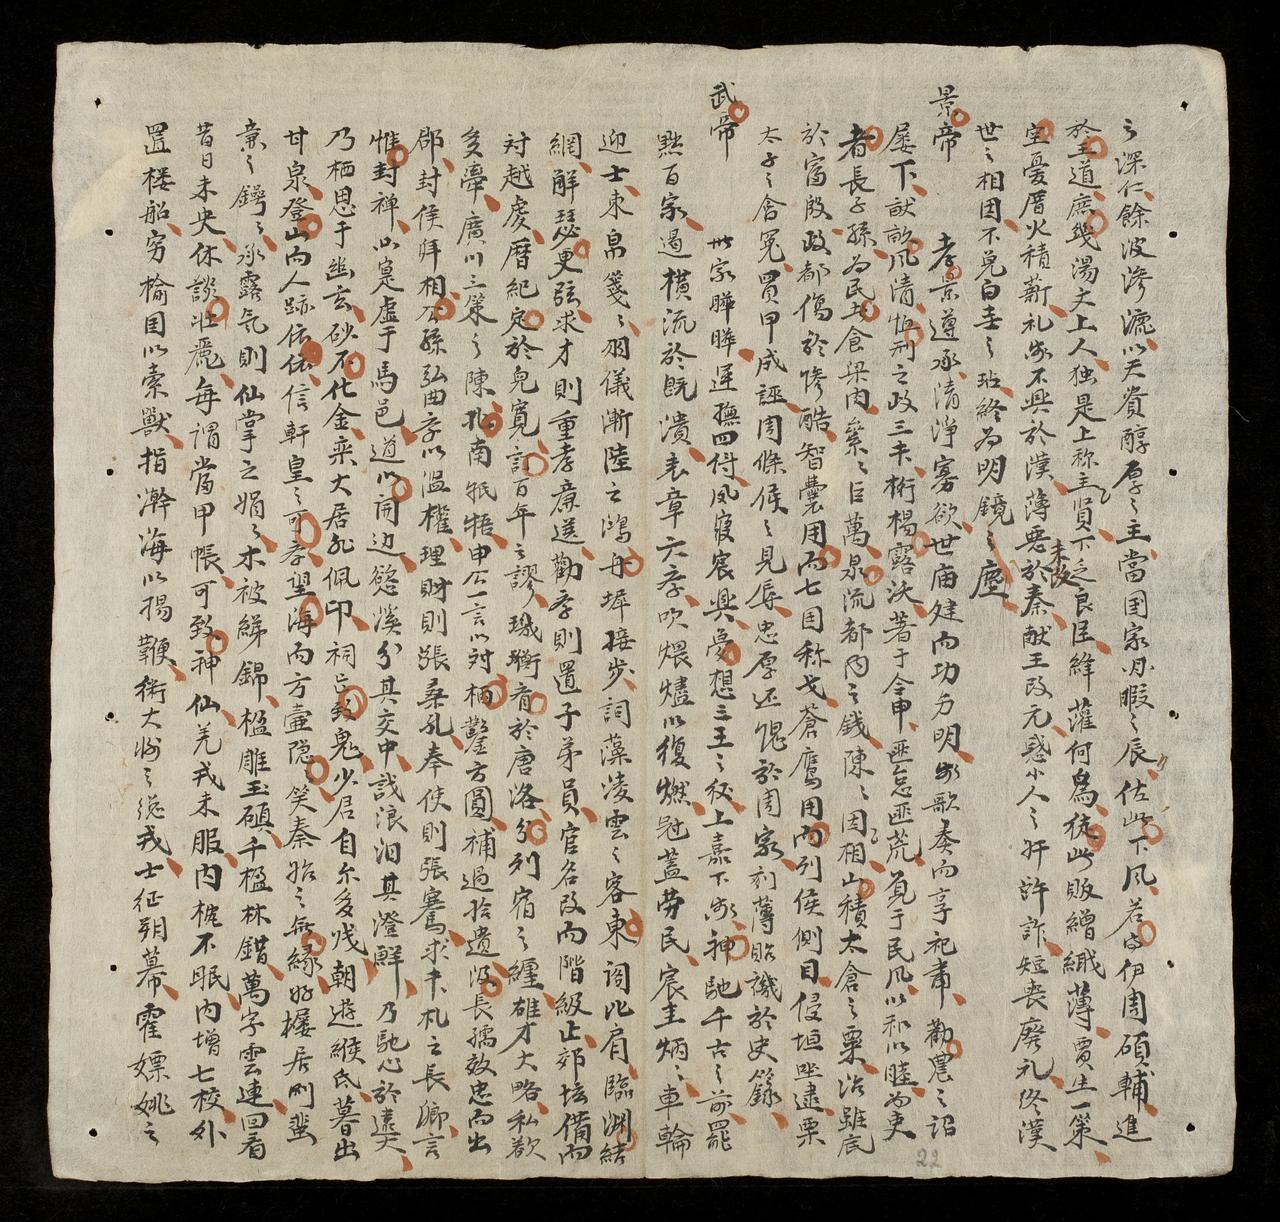 之深仁餘波滲漉以天資醇厚之主當囯家閑暇之辰佐此下风若而伊周碩輔進
於王道庶幾湯文上人独是上称主賢下乏良臣絳灌何為徒此販繒織薄賈生一策
空憂厝火積薪礼楽不興於漢薄悪於秦未改献王改元惑小人之奸許詐短丧廢礼終漢
世之相因不免白圭之玷終为明鏡之塵
景帝
孝景遵承清淨寡欲世庙建而功方明楽歌奏而享祀肅勸農之詔
屡下畎畝风清恤刑之政三年桁楊露決著于令甲匪怠匪荒覓于民风以和以睦为吏
者長子孫为民者食梁肉纍纍巨萬泉流都內之錢陳陳因相山積太倉之粟治雖底
於富殷政都傷於慘酷智囊用而七囯称戈蒼鹰用而列侯側目侵垣坐逮栗
太子之含冤買甲成誣周條侯之見辱忠厚还愧於周家刻薄貽譏於史籙
武帝
世家曄曄遅撫四得夙寢宸興夢想三王之級上嘉下楽神馳千古之前罷
黜百家遏横流於既潰表章六孝吹煨燼以復燃冠蓋劳民宸主炳炳車輪
迎士束帛箋箋羽儀漸陸之鴻丹墀接步詞藻凌雲之客東闼比肩臨淵結
網解瑟更弦求才則重孝廉選勸孝則置子弟員官名改而階級正郊坛備而
对越虔曆紀定於兒寬訂百年之謬璣衡肴於唐洛分列宿之纏雄才大略私欲
多濘廣川三策之陳北南牴牾申公一言以对柄鑿方圓補過拾遺汲長孺效忠而出
郡封侯拜相公孫弘曲孝以温權理財則張桑孔奉使則張騫求未札之長卿言
惟封禅以寔虛于馬邑道以開边慾溪分其交中战浪汨其澄鮮乃馳心於遠大
乃栖思于幽玄砂不化金栾大居死佩印祠已致鬼少君自尔多戋朝遊緱氏暮出
甘泉登山而人跡依依信軒皇之可孝望海而方壺隠隠笑秦始之無緣好樓居則蜚
亷之鑮鑮承露气則仙掌之娟娟木被綈錦楹雕玉碩千楹林錯萬字雲連回看
昔日未央休談壮麗每谓當甲帳可致神仙羌戎未服內梡不眠内增七校外
置楼船穷榆囯以索獸指瀚海以揚鞭衛大將之総戎士征朔幕霍嫖姚之
22